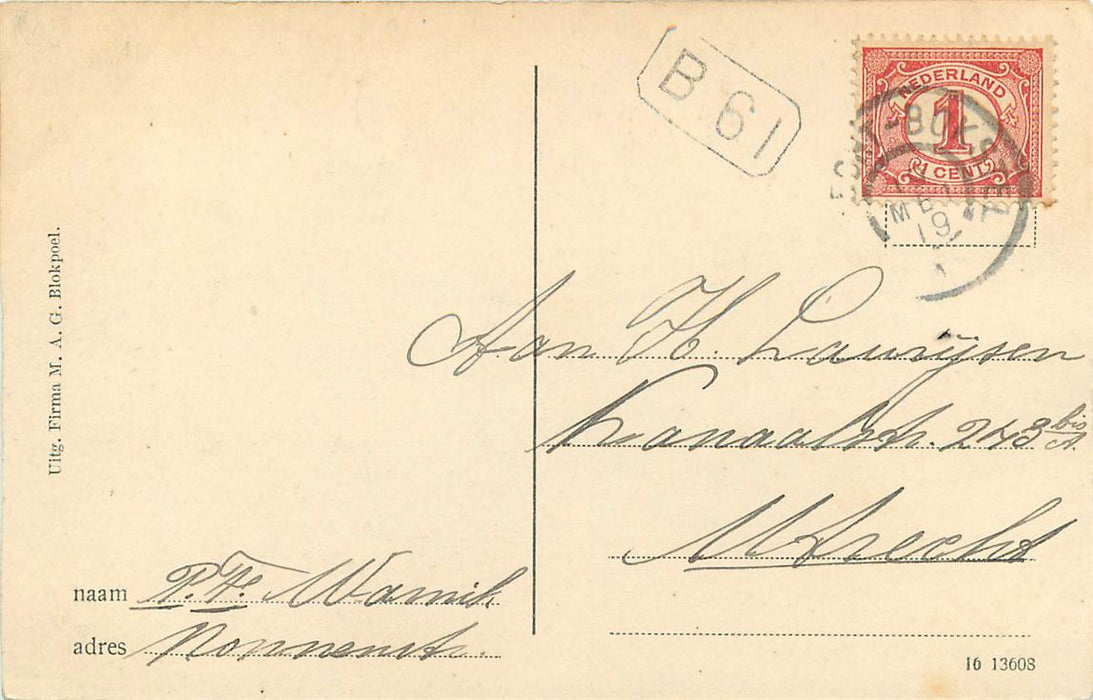 B 61
NEDERLAND
1
1 CENT
MEI
19
Uitg. Firma M. A. G. Blokpoel.
Aan H. Laurijsen
Kanaalstr. 243 bis A.
Utrecht
naam P. Fs. Warnik
adres Nonnenstr.
16 13608